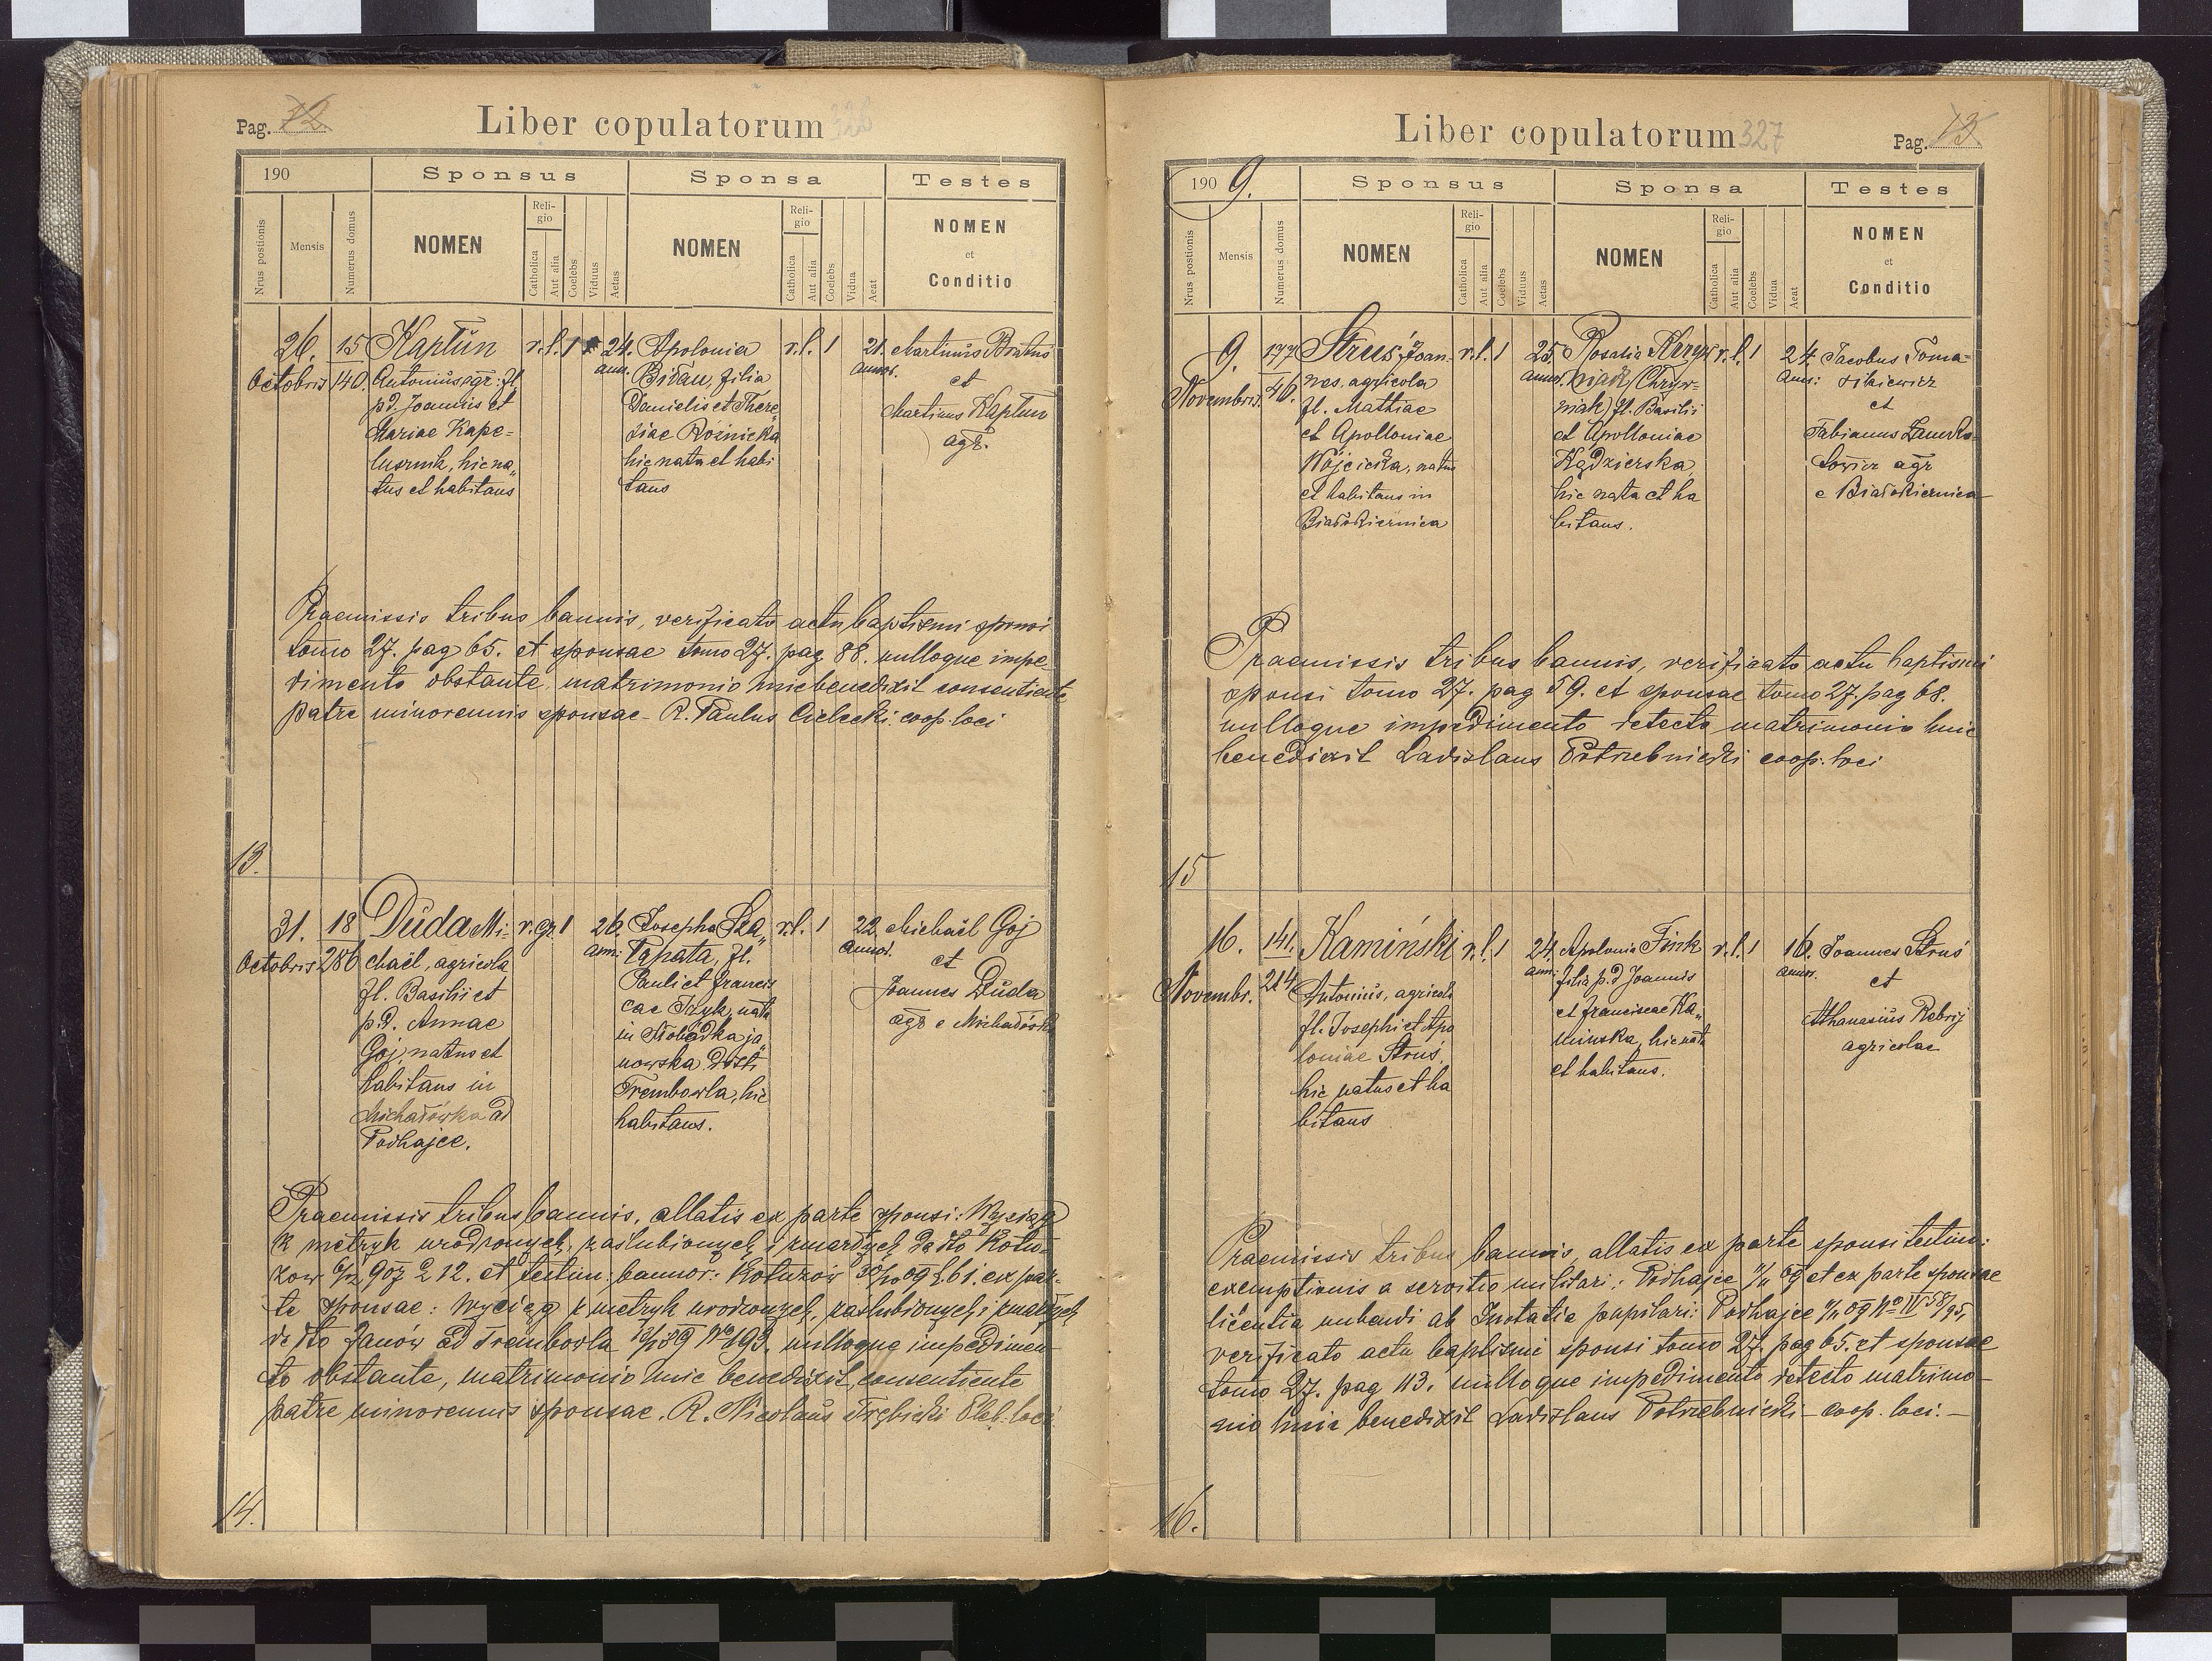 Pag. 72
Liber copulatorum 326
190
Sponsus
Sponsa
Testes
Nrus postionis
Mensis
Numerus domus
NOMEN
Religio
Catholica
Aut alia
Coelebs
Viduus
Aetas
NOMEN
Religio
Catholica
Aut alia
Coelebs
Vidua
Aeat
NOMEN
et
Conditio
13.
26.
Octobris
15
140.
Kaptun
Antonius agr: fl.
p.d. Joannis et
Mariae Kape=
lusznik, hic na„
tus et habitans
r.l. 1
24.
ann.
Apolonia
Bidau, filia
Danielis et There„
siae Roźnicka
hic nata et habi
tans
r.l. 1
21.
annor.
Martinus Bratus
et
Martinus Kaptun
agr.
Praemissis tribus bannis, verificato actu baptismi sponsi
tomo 27. pag 65. et sponsae tomo 27. pag 88. nulloque impe
dimento obstante matrimonio huic benedixit consentiente
patre minorennis sponsae - R. Paulus Cielecki coop. loci
14.
31.
Octobris
18
286
Duda Mi-
chaël, agricola
fl. Basilii et
p.d. Annae
Goj, natus et
habitans in
Michałówka ad
Podhajce.
r.gr. 1
26.
ann:
Josepha Sza„
Tapata, fl.
Pauli et Francis
cae Tzyk, nata
in Słobódka ja„
nowska Distr
Trembowla, hic
habitans.
r.l. 1
22.
annor.
Michaël Goj
et
Joannes Duda
agr e Michałówka
Praemissis tribus bannis, allatis ex parte sponsi: Wyciąg
z metryk urodzonych, zaślubionych i zmarłych de dto Kotu-
zow 907 L 12. et testim: bannor: Kotuzów 30/10 09 L.61. ex par-
te sponsae: Wyciąg z metryk urodzonych, zaślubionych i zmarłych
de dto Janów ad Trembowla No 193. nulloque impedimen
to obstante, matrimonio huic benedixit, consentiente
patre minorennis sponsae. R. Nicolaus Trębicki Pleb. loci
Liber copulatorum 327
Pag. 73
190 9.
Sponsus
Sponsa
Testes
Nrus postionis
Mensis
Numerus domus
NOMEN
Religio
Catholica
Aut alia
Coelebs
Viduus
Aetas
NOMEN
Religio
Catholica
Aut alia
Coelebs
Vidua
Aeat
NOMEN
et
Conditio
15
9.
Novembris.
177
46.
Struś, Joan-
nes. agricola
fl. Mathiae
et Apolloniae
Wójcicka, natus
et habitans in
Białokiernica
r.l. 1
25.
annor.
Rosalia Kryw
niak (Chryw-
niak) fl. Basilii
et Apolloniae
Kędzierska,
hic nata et ha
bitans.
r.l. 1
24.
Ann:
Jacobus Toma=
sikiewicz
et
Fabianus
agr
e Białokiernica
Praemissis tribus bannis, verificato actu baptismi
sponsi tomo 27. pag 59. et sponsae tomo 27. pag 68.
nulloque impedimento detecto matrimonio huic
benedixit Ladislaus Potrzebnicki coop. loci
16.
16.
Novembr.
141.
214
Kamiński
Antonius, agricola
fl. Josephi et Apo
loniae Struś,
hic natus et ha
bitans
r.l. 1
24.
ann:
Apolonia Fink
filia p.d Joannis
et Franciscae Ka„
minska, hic nata
et habitans.
r.l. 1
16.
annor.
Joannes Struś
et
Athanasius Rebrij
agricolae
Praemissis tribus bannis, allatis ex parte sponsi testim:
exemptionis a servitio militari: Podhajce 09 et ex parte sponsae
licentia nubendi ab Instatia pupilari: Podhajce 09 No IV 58/95,
verificato actu baptismi sponsi tomo 27. pag 65. et sponsae
tomo 27. pag 113. nulloque impedimento detecto matrimo-
nio huic benedixit Ladislaus Potrzebnicki - coop. loci. -